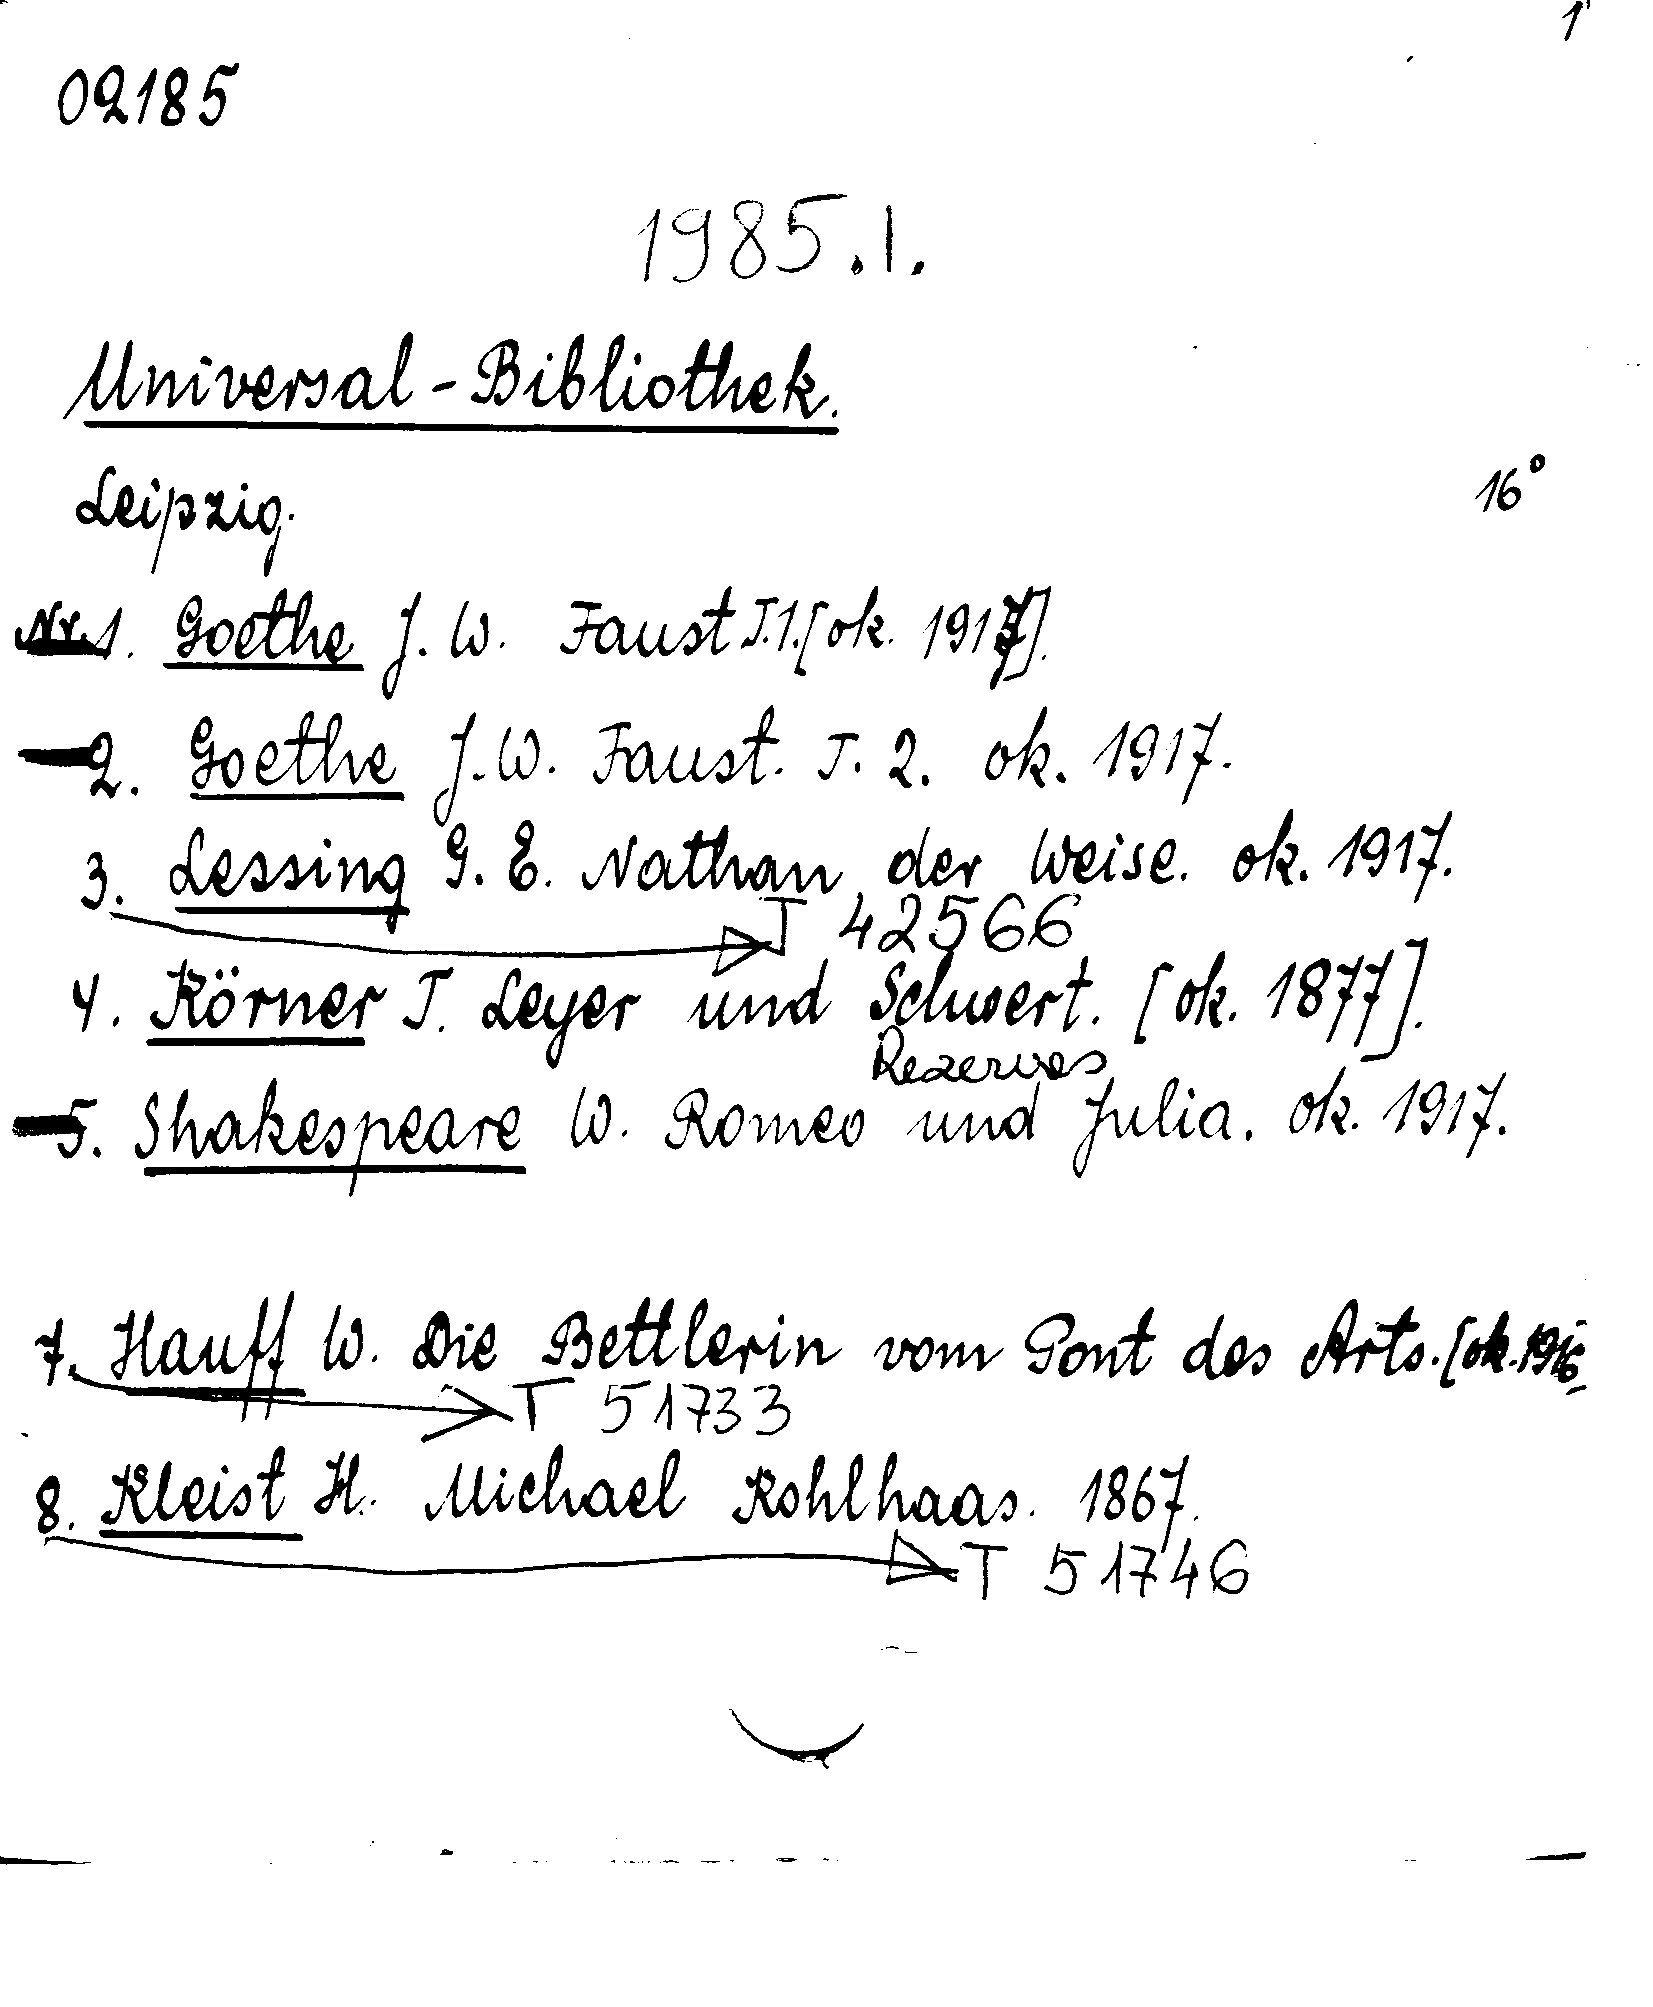 1
02185
1985.I.
Universal-Bibliothek.
Leipzig. 16°
Nr. 1. Goethe J. W. Faust T.1. [ok. 1917].
2. Goethe J. W. Faust. T. 2. ok. 1917.
3. Lessing G. E. Nathan der Weise. ok. 1917.
T 42566
4. Körner T. Leyer und Schwert. [ok. 1877].
Rezerves
5. Shakespeare W. Romeo und Julia. ok. 1917.
7. Hauff W. Die Bettlerin vom Pont des Arts. [ok.
T 51733
8. Kleist H. Michael Kohlhaas. 1867.
T 51746